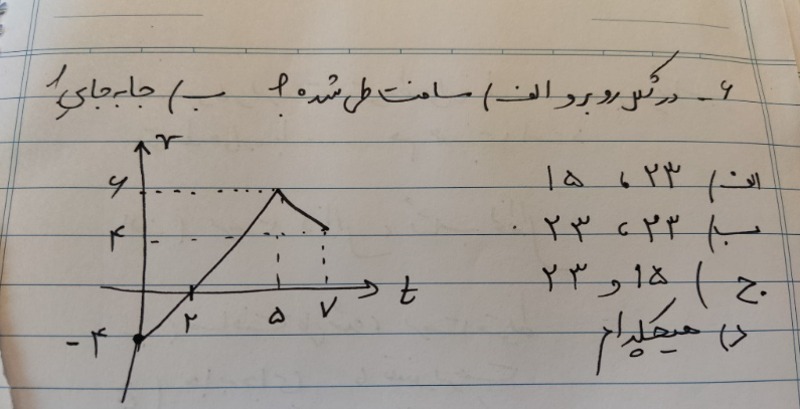 ۶- در شکل روبرو الف) مسافت طی شده؟ ب) جابه‌جایی؟
الف) ۲۳ ، ۱۵
ب) ۲۳ ، ۲۳
ج) ۱۵ و ۲۳
د) هیچکدام
v
۶
۴
t
۲ ۵ ۷
-۴